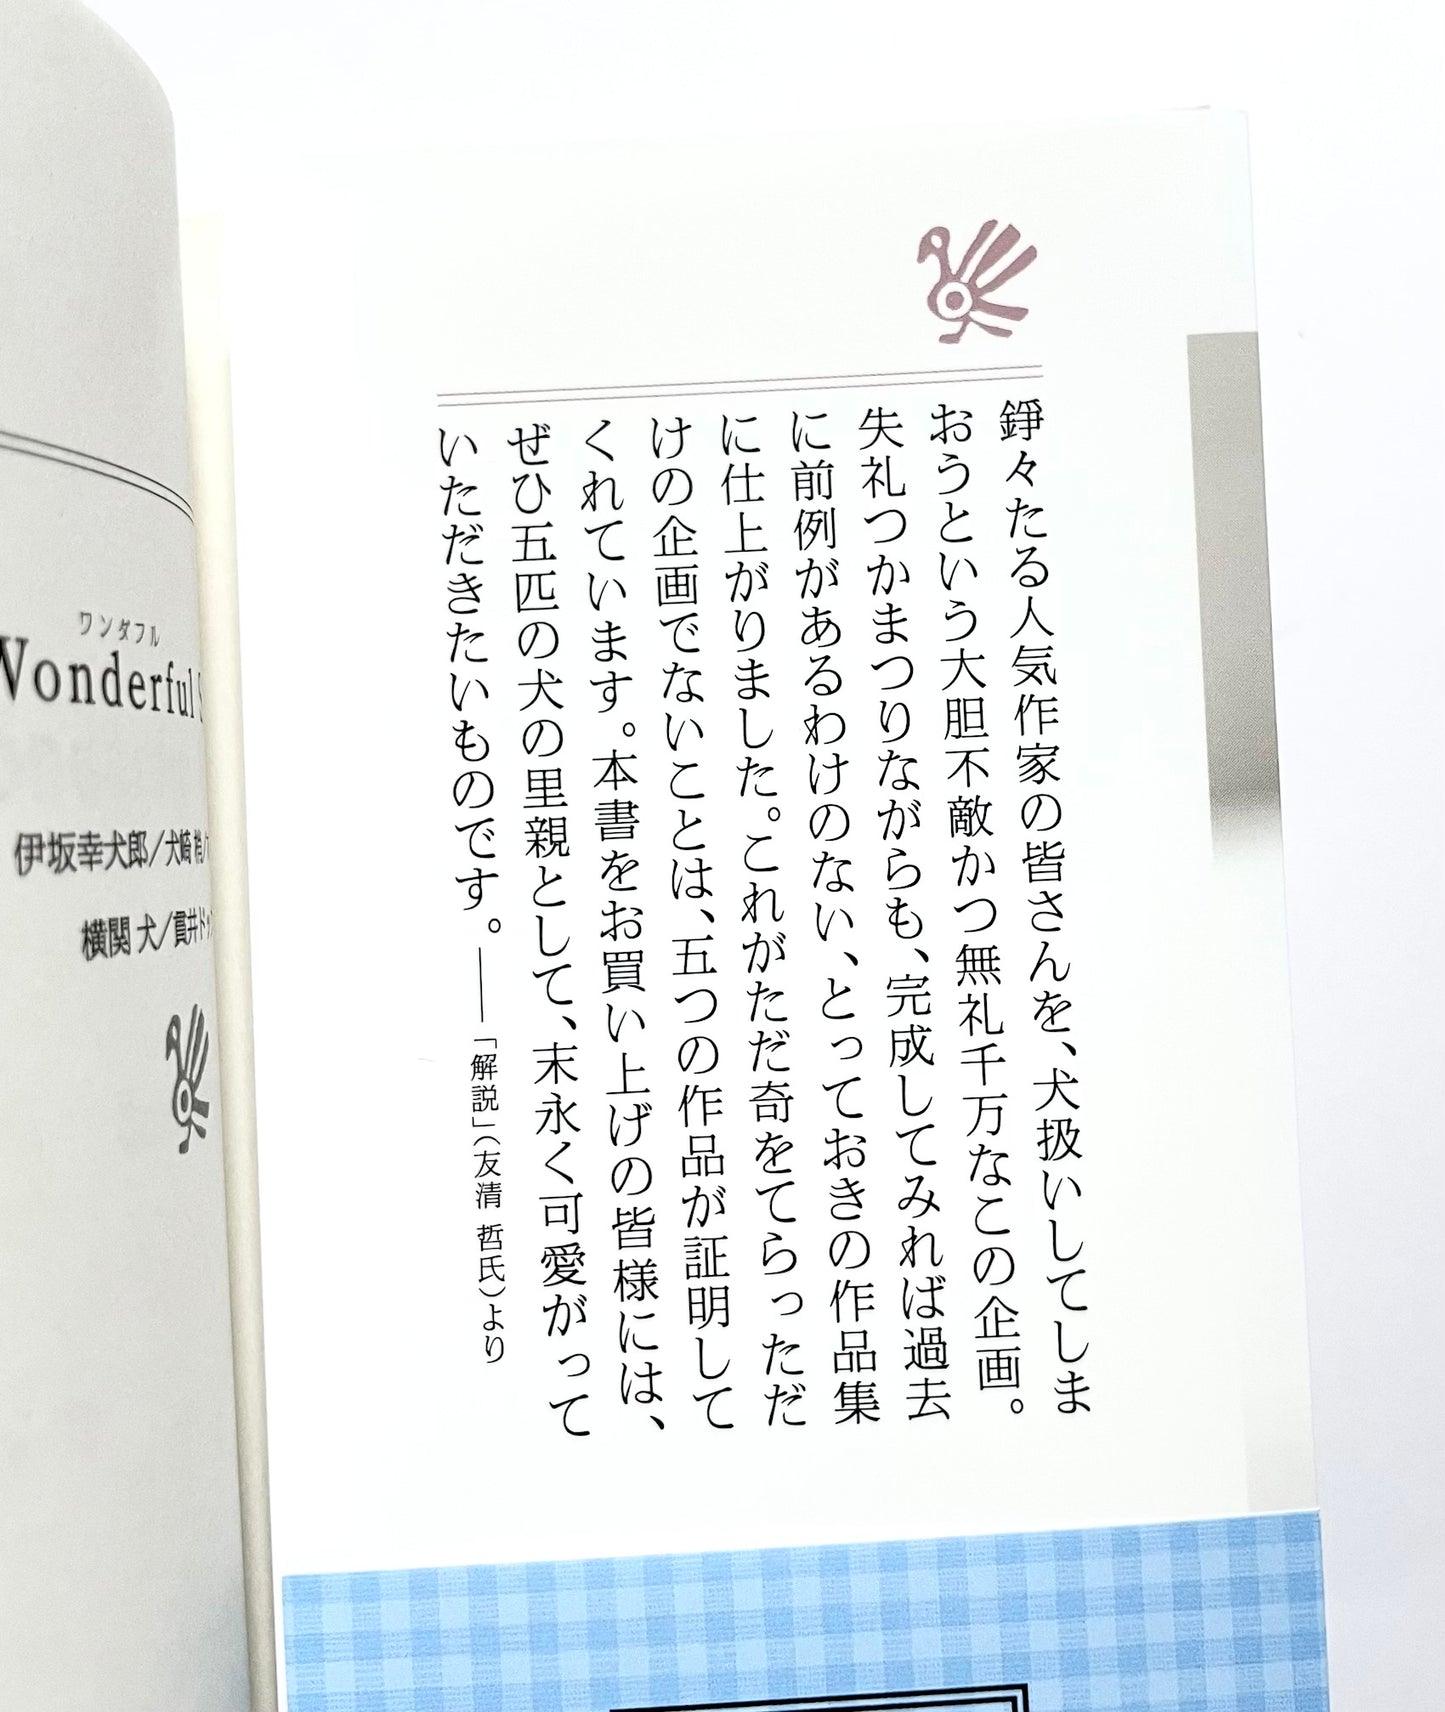 錚々たる人気作家の皆さんを、犬扱いしてしま
おうという大胆不敵かつ無礼千万なこの企画。
失礼つかまつりながらも、完成してみれば過去
に前例があるわけのない、とっておきの作品集
に仕上がりました。これがただ奇をてらっただ
けの企画でないことは、五つの作品が証明して
くれています。本書をお買い上げの皆様には、
ぜひ五匹の犬の里親として、末永く可愛がって
いただきたいものです。――「解説」（友清 哲氏）より
ワンダフル
Wonderful S
伊坂幸犬郎／犬崎 梢／
横関 犬／貫井ドッ